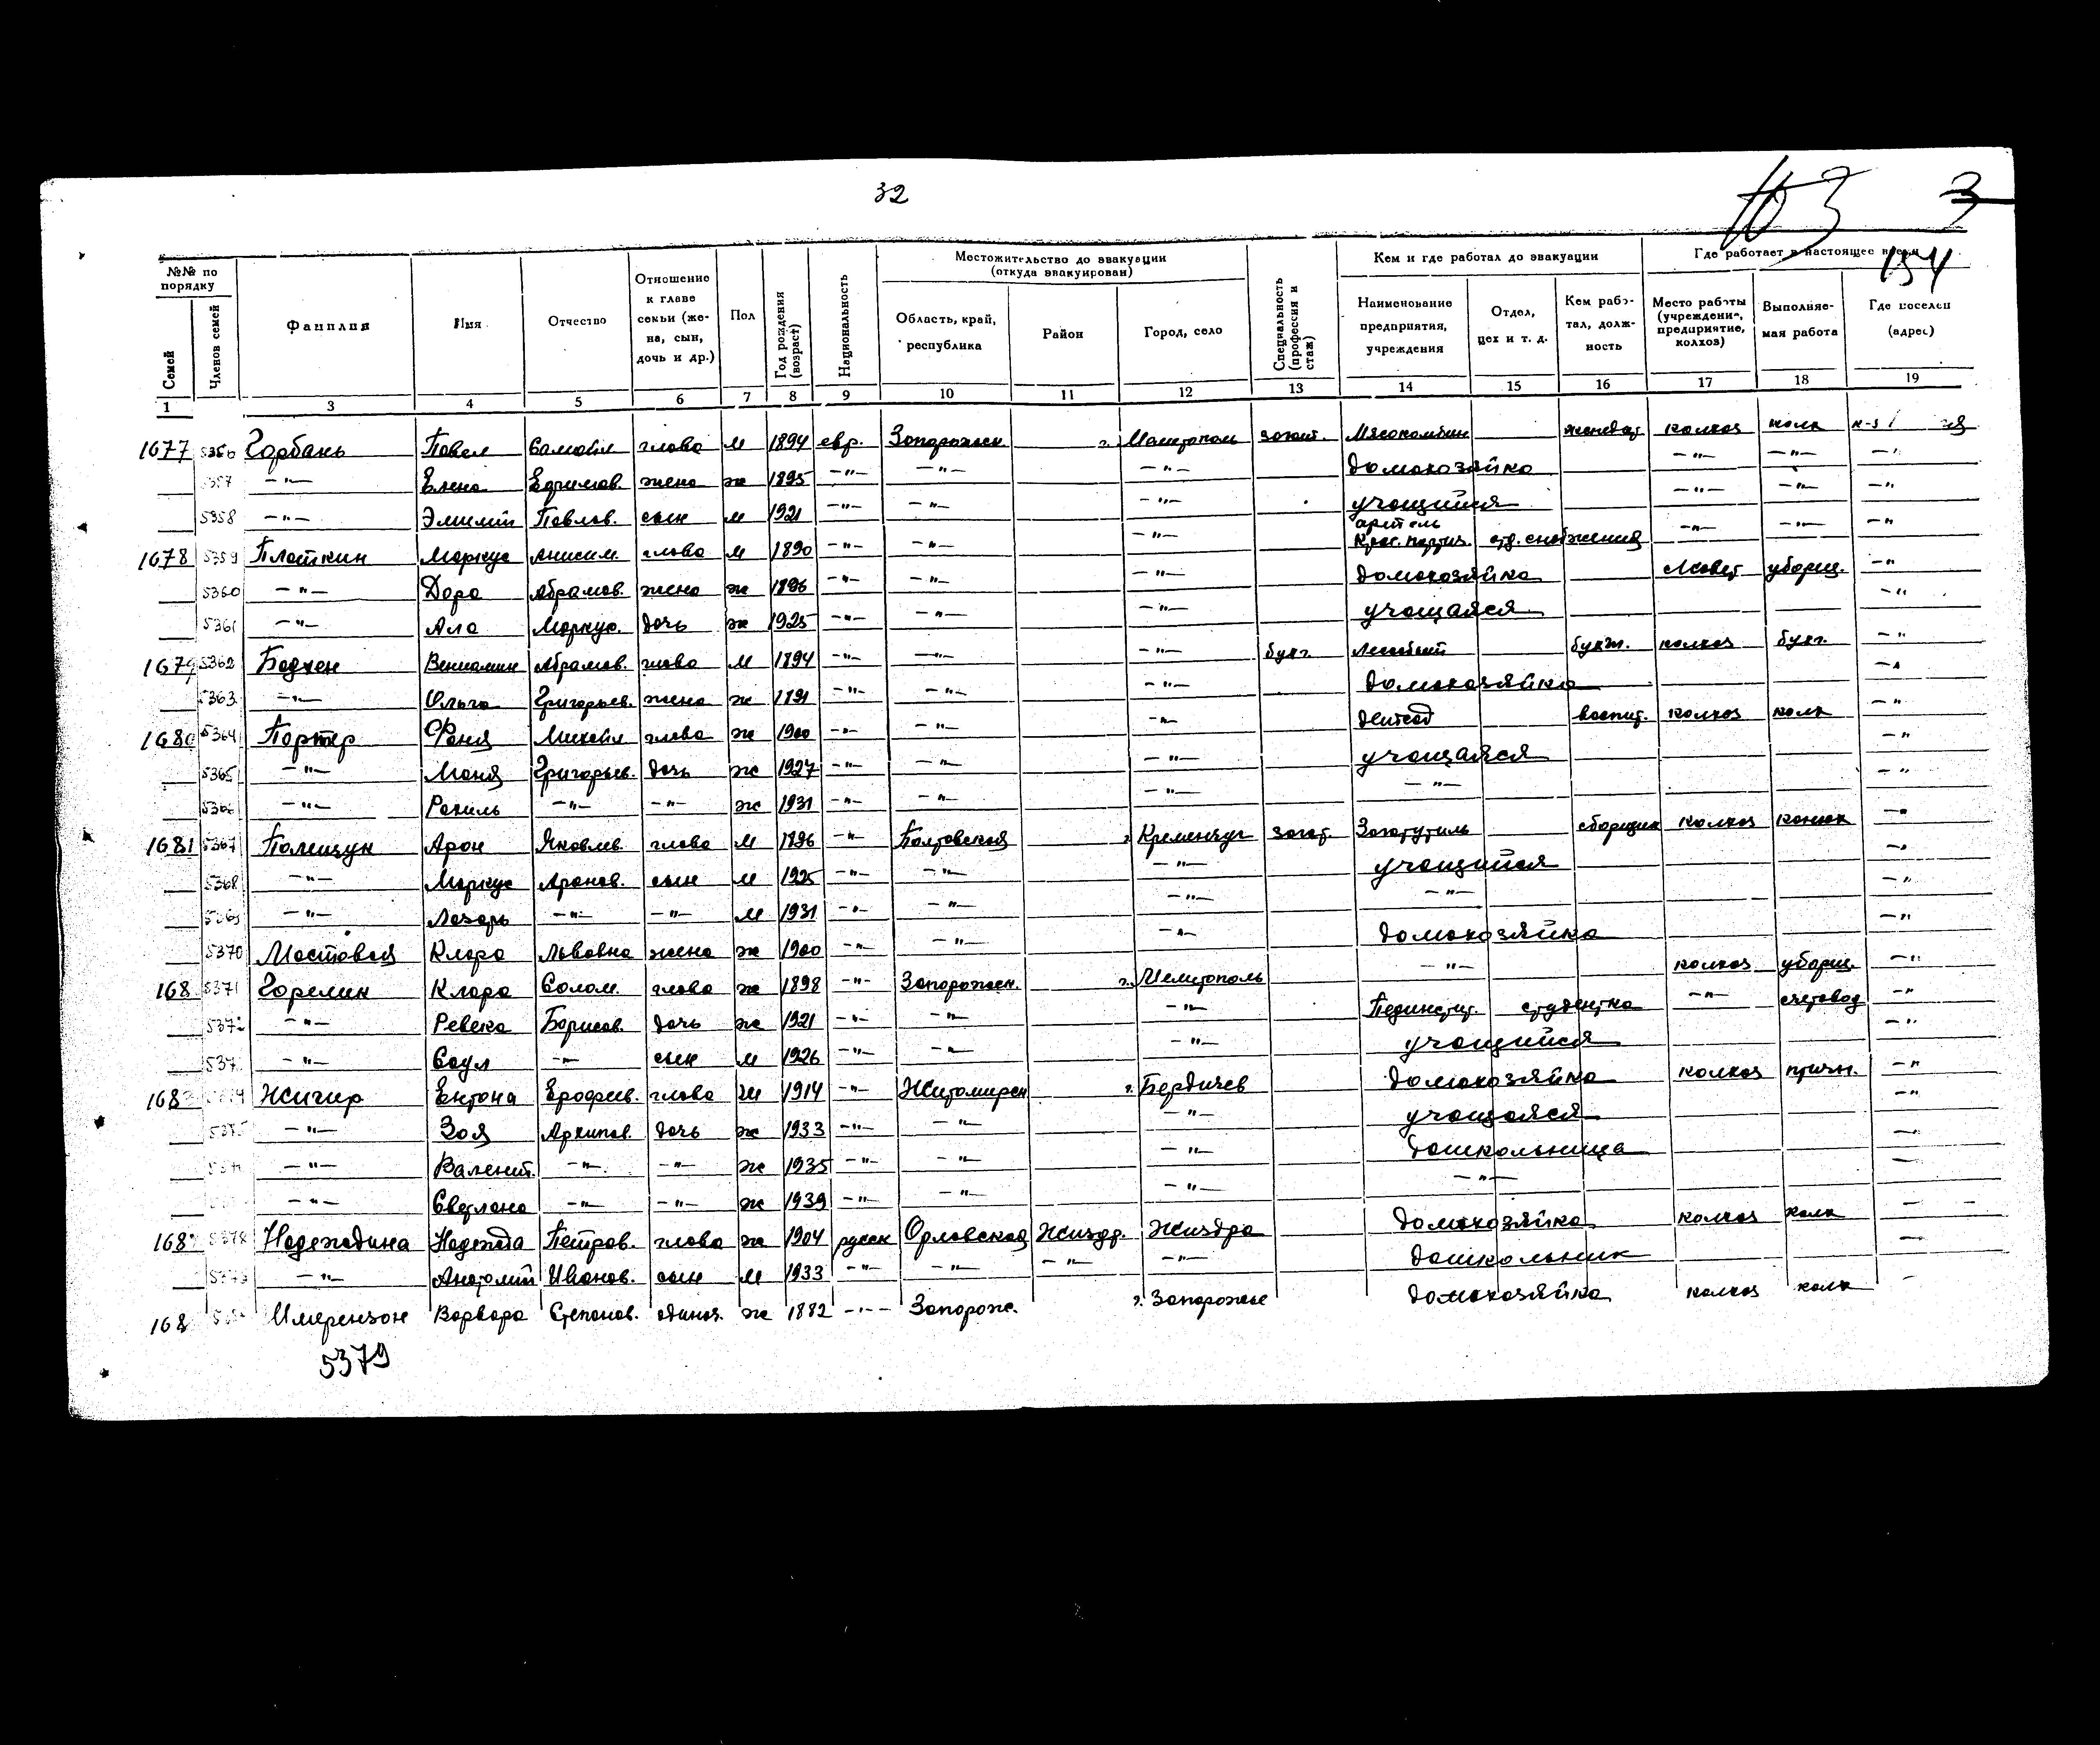 32
3
154
№№ по порядку
Семей
Членов семей
Фамилия
Имя
Отчество
Отношение к главе семьи (жена, сын, дочь и др.)
Пол
Год рождения (возраст)
Национальность
Местожительство до эвакуации (откуда эвакуирован)
Область, край, республика
Район
Город, село
Специальность (профессия и стаж)
Кем и где работал до эвакуации
Наименование предприятия, учреждения
Отдел, цех и т. д.
Кем работал, должность
Где работает в настоящее
Место работы (учреждение, предприятие, колхоз)
Выполняемая работа
Где поселен (адрес)
1 3 4 5 6 7 8 9 10 11 12 13 14 15 16 17 18 19
1677 5356 Горбань Павел Самойл глава м 1894 евр. Запорожск г. Мелитополь загот. Мясокомбин колхоз колх
5357 —"— Елена Ефимов. жена ж 1895 —"— —"— —"— домохозяйка —"— —"— —"
5358 —"— Павлов. сын м 1921 —"— —"— —"— учащийся —"— —"— —"
1678 5359 Плоткин Маркус Анисим. глава м 1890 —"— —"— —"— артель Крас. партиз. отд. снабжения —"— —"— —"
5360 —"— Дора Абрамов. жена ж 1896 —"— —"— —"— домохозяйка уборщ. —"
5361 —"— Ала Маркус. дочь ж 1925 —"— —"— —"— учащаяся —"
1679 5362 Вениамин Абрамов. глава м 1894 —"— —"— —"— бухг. бухг. колхоз бухг. —"
5363 —"— Ольга Григорьев. жена ж 1891 —"— —"— —"— домохозяйка —"
1680 5364 Портер Фаня Михайл глава ж 1900 —"— —"— —"— детсад воспит. колхоз колх —"
5365 —"— Маня Григорьев. дочь ж 1927 —"— —"— —"— учащаяся —"
5366 —"— Рахиль —"— —"— ж 1931 —"— —"— —"— —"— —"
1681 5367 Полищук Арон Яковлев глава м 1896 —"— Полтавская г. Кременчуг загот. Заготутиль сборщик колхоз конюх —"
5368 —"— Маркус Аронов. сын м 1925 —"— —"— —"— учащийся —"
5369 —"— Лазарь —"— —"— м 1931 —"— —"— —"— —"— —"
5370 Мостовая Клара Львовна жена ж 1900 —"— —"— —"— домохозяйка —"
168 5371 Горелик Клара Солом. глава ж 1898 —"— Запорожск. г. Мелитополь —"— колхоз уборщ. —"
5372 —"— Ревека Борисов. дочь ж 1921 —"— —"— —"— Пединстит. студентка —"— счетовод —"
537 —"— Саул —"— сын м 1926 —"— —"— —"— учащийся —"
168 Ерофеев. глава ж 1914 —"— Житомирск г. Бердичев домохозяйка колхоз —"
5375 —"— Зоя Архипов. дочь ж 1933 —"— —"— —"— учащаяся —"
—"— Валент. —"— —"— ж 1935 —"— —"— —"— дошкольница —"
—"— Светлана —"— —"— ж 1939 —"— —"— —"— —"—
168 5378 Надеждина Надежда Петров. глава ж 1904 русск Орловская Жиздр. Жиздра домохозяйка колхоз колх
—"— Анатолий Иванов. сын м 1933 —"— —"— —"— —"— дошкольник
168 Имерензон Варвара Степанов. одинок. ж 1882 —"— Запорож. г. Запорожье домохозяйка колхоз колх
5379